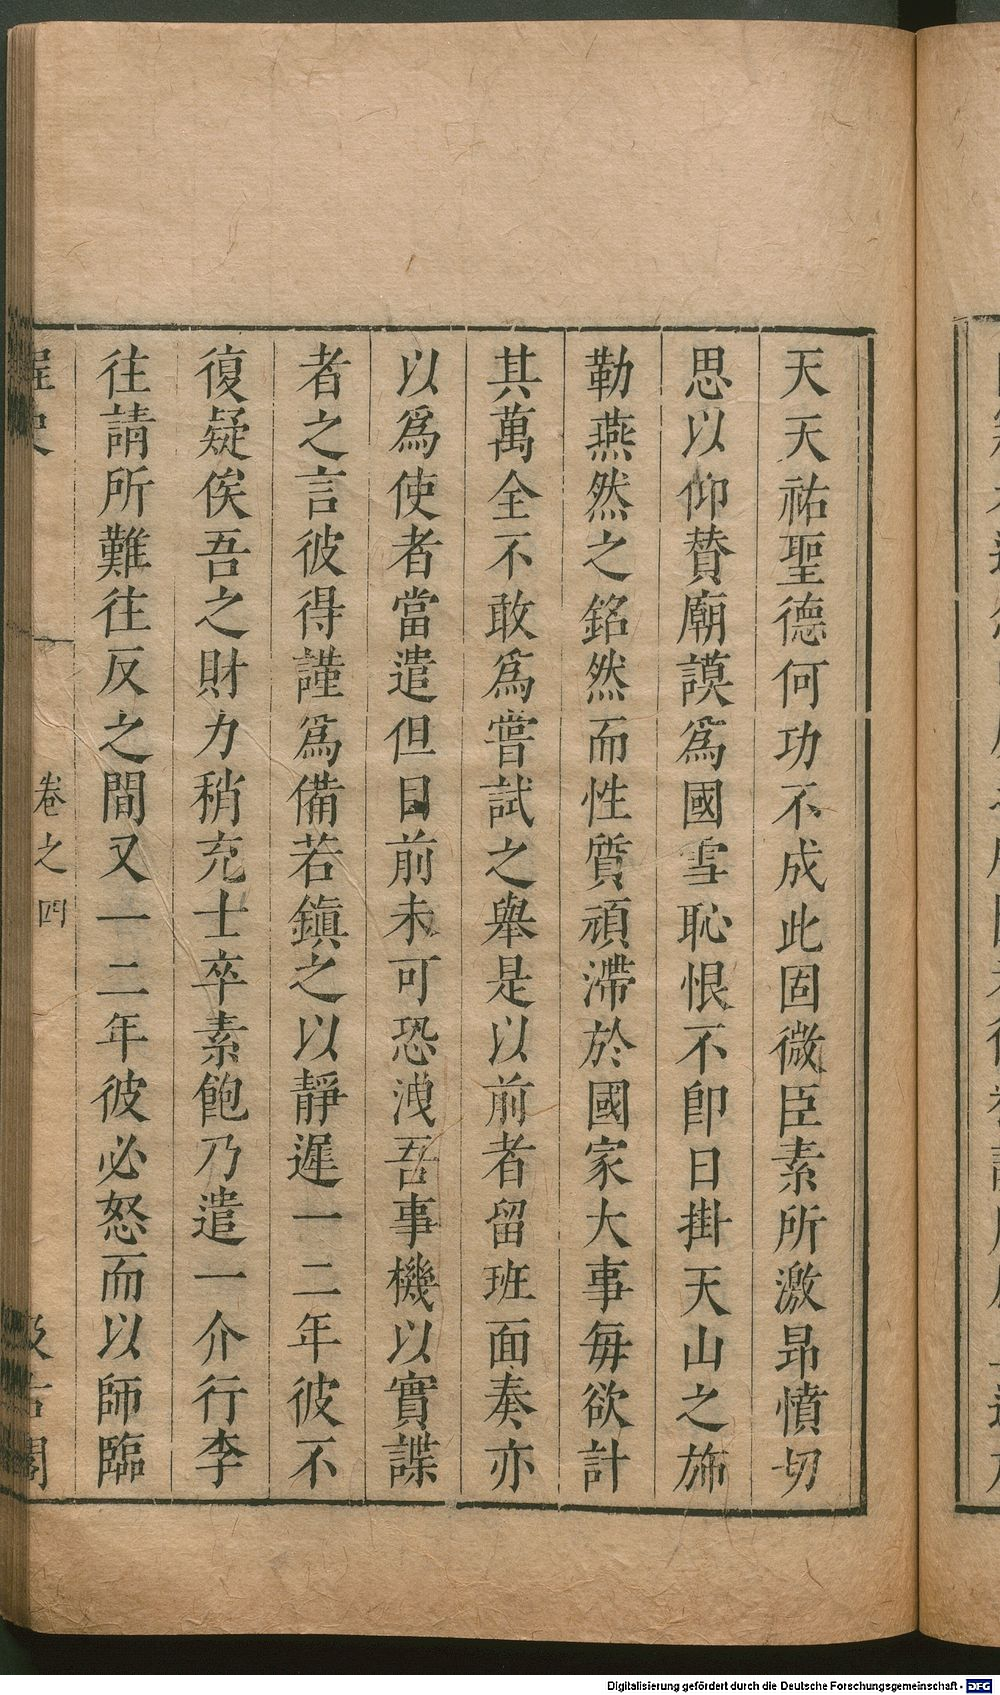 天天祐聖德何功不成此固微臣素所激昻憤切
思以仰賛廟謨爲國雪恥恨不卽日掛天山之斾
勒燕然之銘然而性質頑滯於國家大事每欲計
其萬全不敢爲嘗試之舉是以前者留班面奏亦
以爲使者當遣但目前未可恐洩吾事機以實諜
者之言彼得謹爲備若鎭之以靜遲一二年彼不
復疑俟吾之財力稍充士卒素飽乃遣一介行李
往請所難往反之間又一二年彼必怒而以師臨
桯史
卷之四
汲古閣
Digitalisierung gefördert durch die Deutsche Forschungsgemeinschaft - DFG